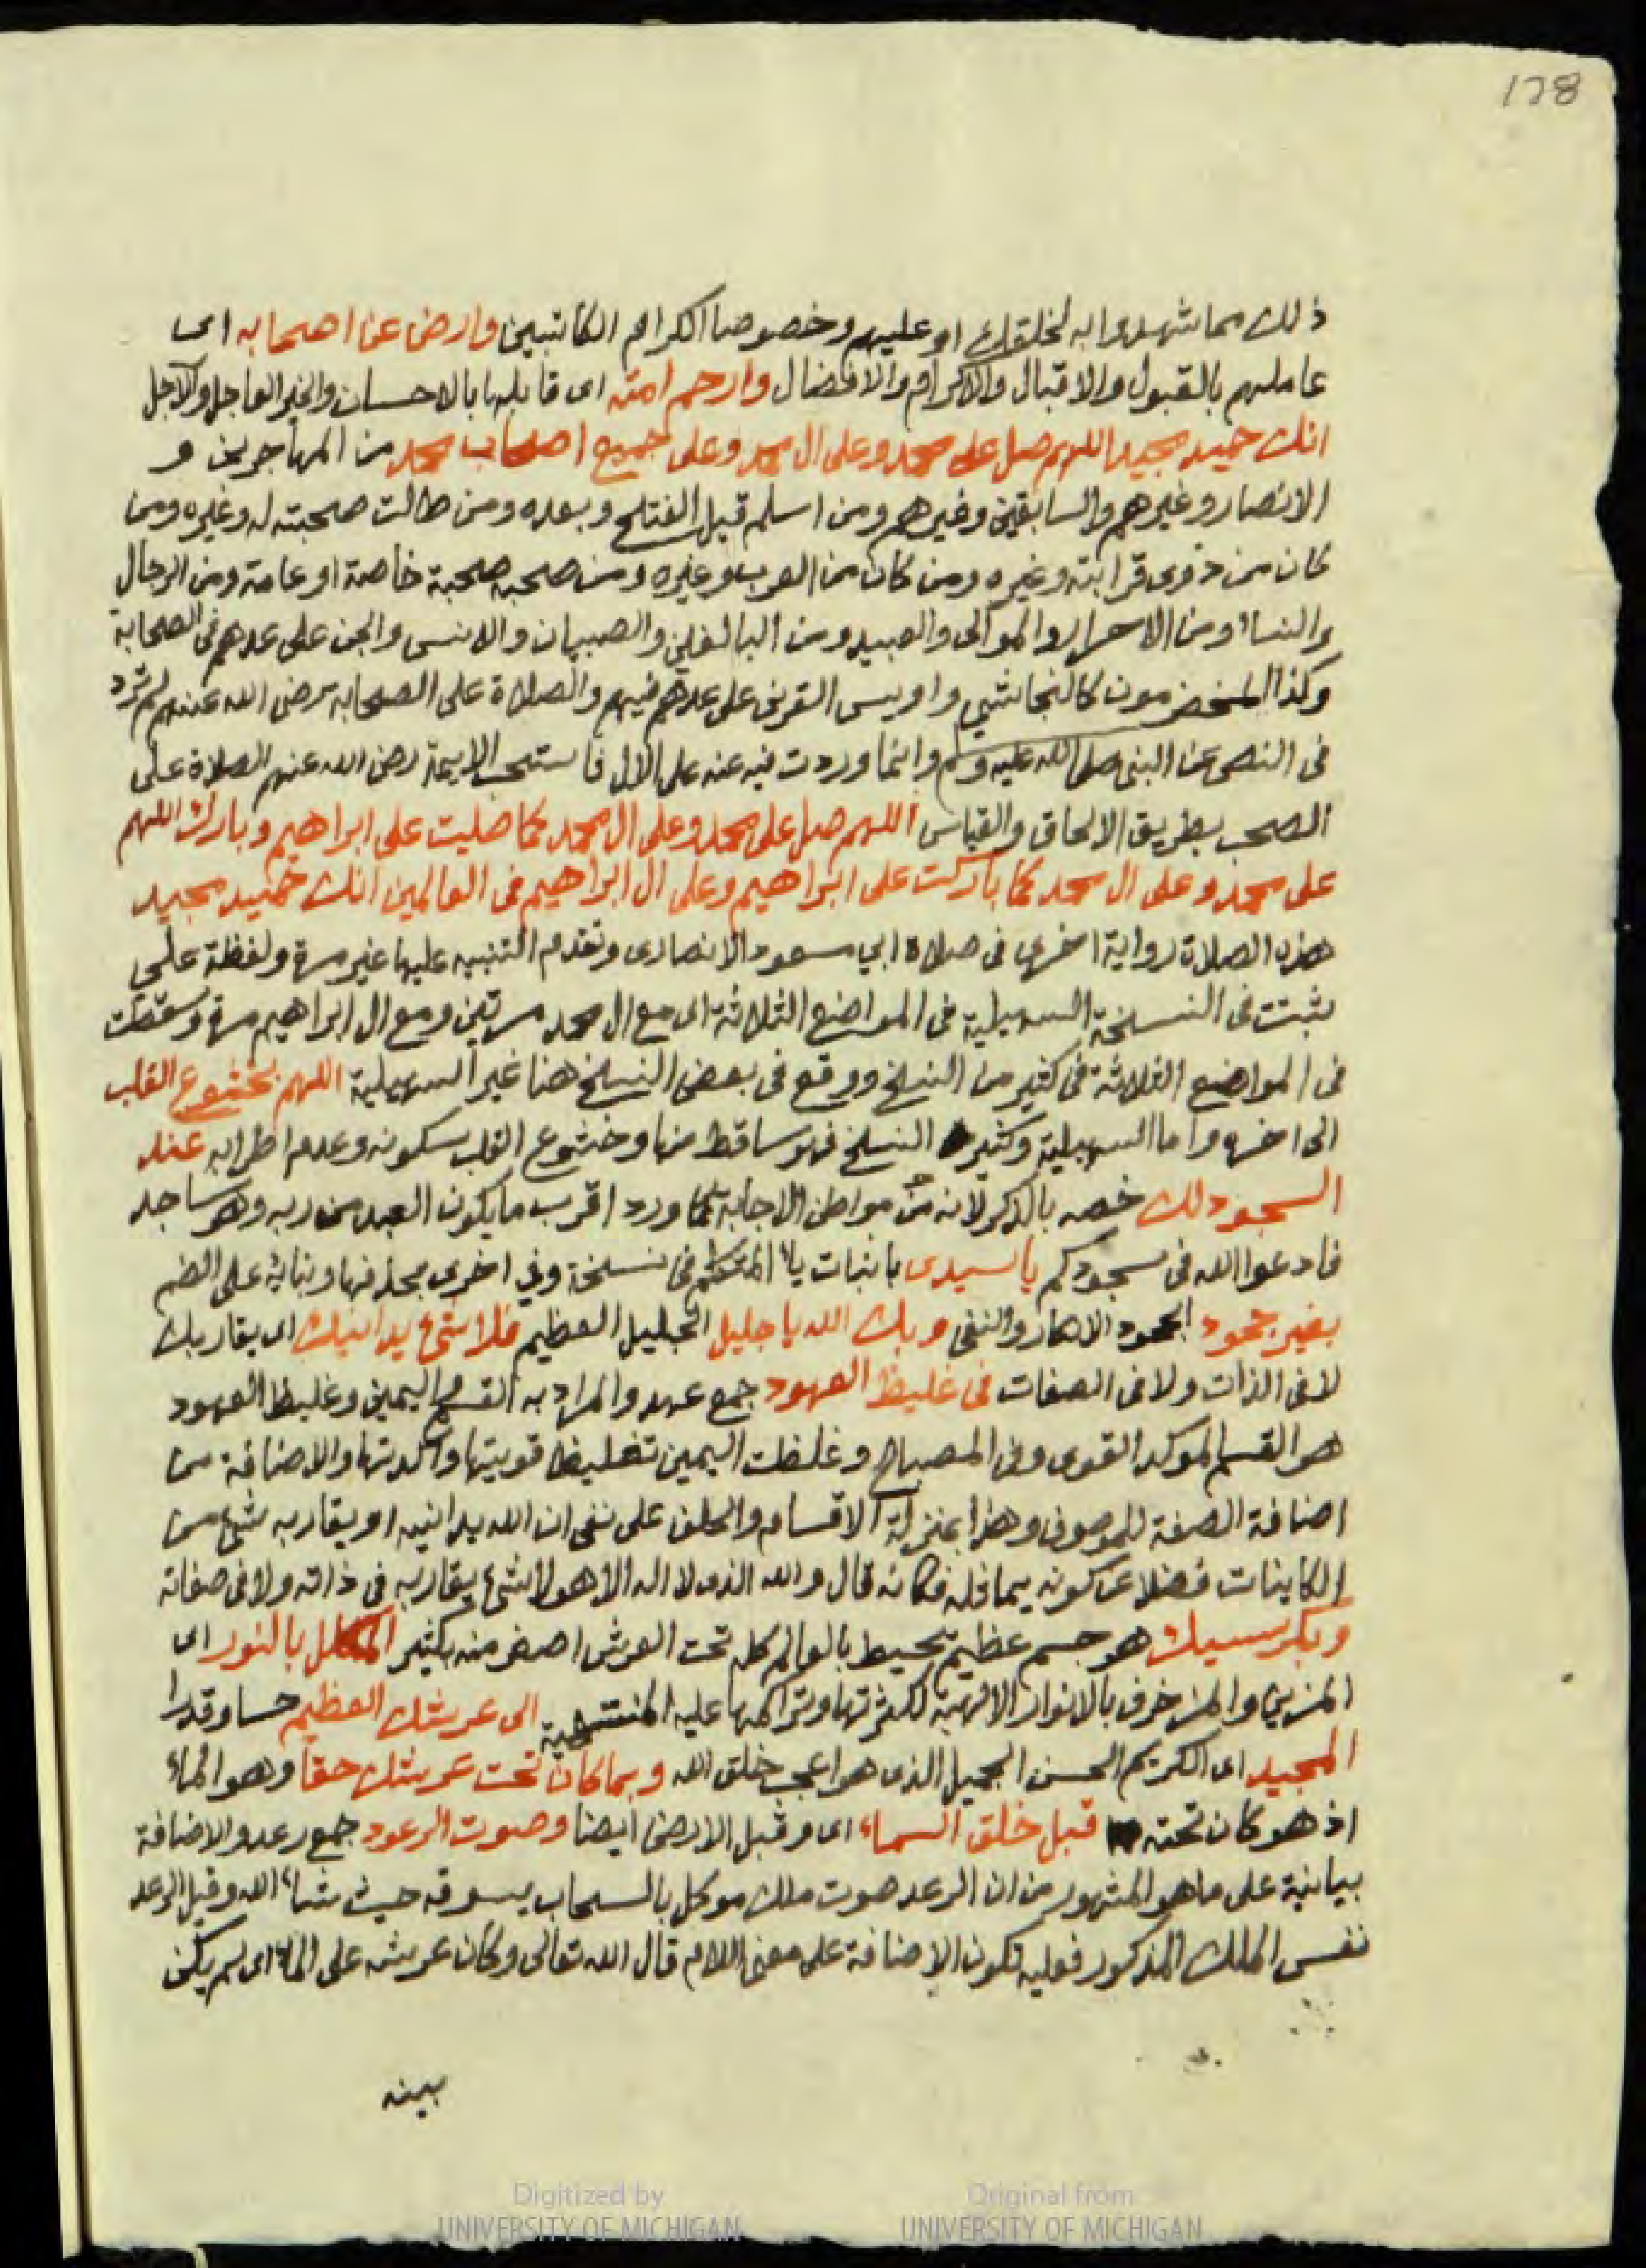 178
ذلك مما شهدوا به لخلقك او عليهم وخصوصا الكرام الكاتبين وارض عن اصحابه اى
عاملهم بالقبول والاقبال والاكرام والافضال وارحم امته اى قابلها بالاحسان والخير العاجل والآجل
انك حميد مجيد اللهم صل على محمد وعلى ال محمد وعلى جميع اصحاب محمد من المهاجرين و
الانصار وغيرهم والسابقين وغيرهم ومن اسلم قبل الفتح وبعده ومن طالت صحبته له وغيره ومن
كان من ذوى قرابته وغيره ومن كان من العرب وغيره ومن صحبه صحبة خاصة او عامة ومن الرجال
والنساء ومن الاحرار والموالى والعبيد ومن البالغين والصبيان والانس والجن على عدهم فى الصحابة
وكذا المخضرمون كالنجاشى واويس القرنى على عدهم فيهم والصلاة على الصحابة رضى الله عنهم لم ترد
فى النص عن النبى صلى الله عليه وسلم وانما وردت فيه عنه على الال فاستحب الايمة رضى الله عنهم الصلاة على
الصحب بطريق الالحاق والقياس اللهم صل على محمد وعلى ال محمد كما صليت على ابراهيم وبارك اللهم
على محمد وعلى ال محمد كما باركت على ابراهيم وعلى ال ابراهيم فى العالمين انك حميد مجيد
هذه الصلاة رواية اخرى فى صلاة ابي مسعود الانصارى وتقدم التنبيه عليها غير مرة ولفظة على
ثبتت فى النسخة السهيلية فى المواضع الثلاثة اى مع ال محمد مرتين ومع ال ابراهيم مرة وسقطت
فى المواضع الثلاثة فى كثير من النسخ ووقع فى بعض النسخ هنا غير السهيلية اللهم بخشوع القلب
الى اخره واما السهيلية وكثير النسخ فهو ساقط منها وخشوع القلب سكونه وعدم اضطرابه عند
السجود لك خصه بالذكر لانه من مواطن الاجابة كما ورد اقرب ما يكون العبد من ربه وهو ساجد
فادعوا الله فى سجودكم يا سيدى باثبات ياء المتكلم فى نسخة وفي اخرى بحذفها وبنائه على الضم
بغير جحود الجحود الانكار والنفى وبك الله يا جليل الجليل العظيم فلا شئ يدانيك اى يقاربك
لا فى الذات ولا فى الصفات فى غليظ العهود جمع عهد والمراد به القسم اليمين وغليظ العهود
هو القسم الموكد القوى وفى المصباح وغلظت اليمين تغليظا قويتها واكدتها والاضافة من
اضافة الصفة للموصوف وهذا بمنزلة الاقسام والحلف على نفى ان الله يدانيه او يقاربه شئ من
الكاينات فضلا عن كونه يماثله فكانه قال والله الذى لا اله الا هو لا شئ يقاربه فى ذاته ولا فى صفاته
وبكرسيك هو جسم عظيم محيط بالعالم كله تحت العرش اصغر منه بكثير المكلل بالنور اى
المزين والمزخرف بالانوار الالهية لكثرتها وتراكمها عليه المنتهية الى عرشك العظيم حسا وقدرا
المجيد اى الكريم الحسن الجميل الذى هو اعجب خلق الله وبما كان تحت عرشك حقا وهو الماء
اذ هو كان تحته قبل خلق السماء اى وقبل الارض ايضا وصوت الرعود جمع رعد والاضافة
بيانية على ما هو المشهور من ان الرعد صوت ملك موكل بالسحاب يسوقه حيث شاء الله وقيل الرعد
نفس الملك المذكور فعليه تكون الاضافة على معنى اللام قال الله تعالى وكان عرشه على الماء اى لم يكن
بينه
Digitized by
UNIVERSITY OF MICHIGAN
Original from
UNIVERSITY OF MICHIGAN